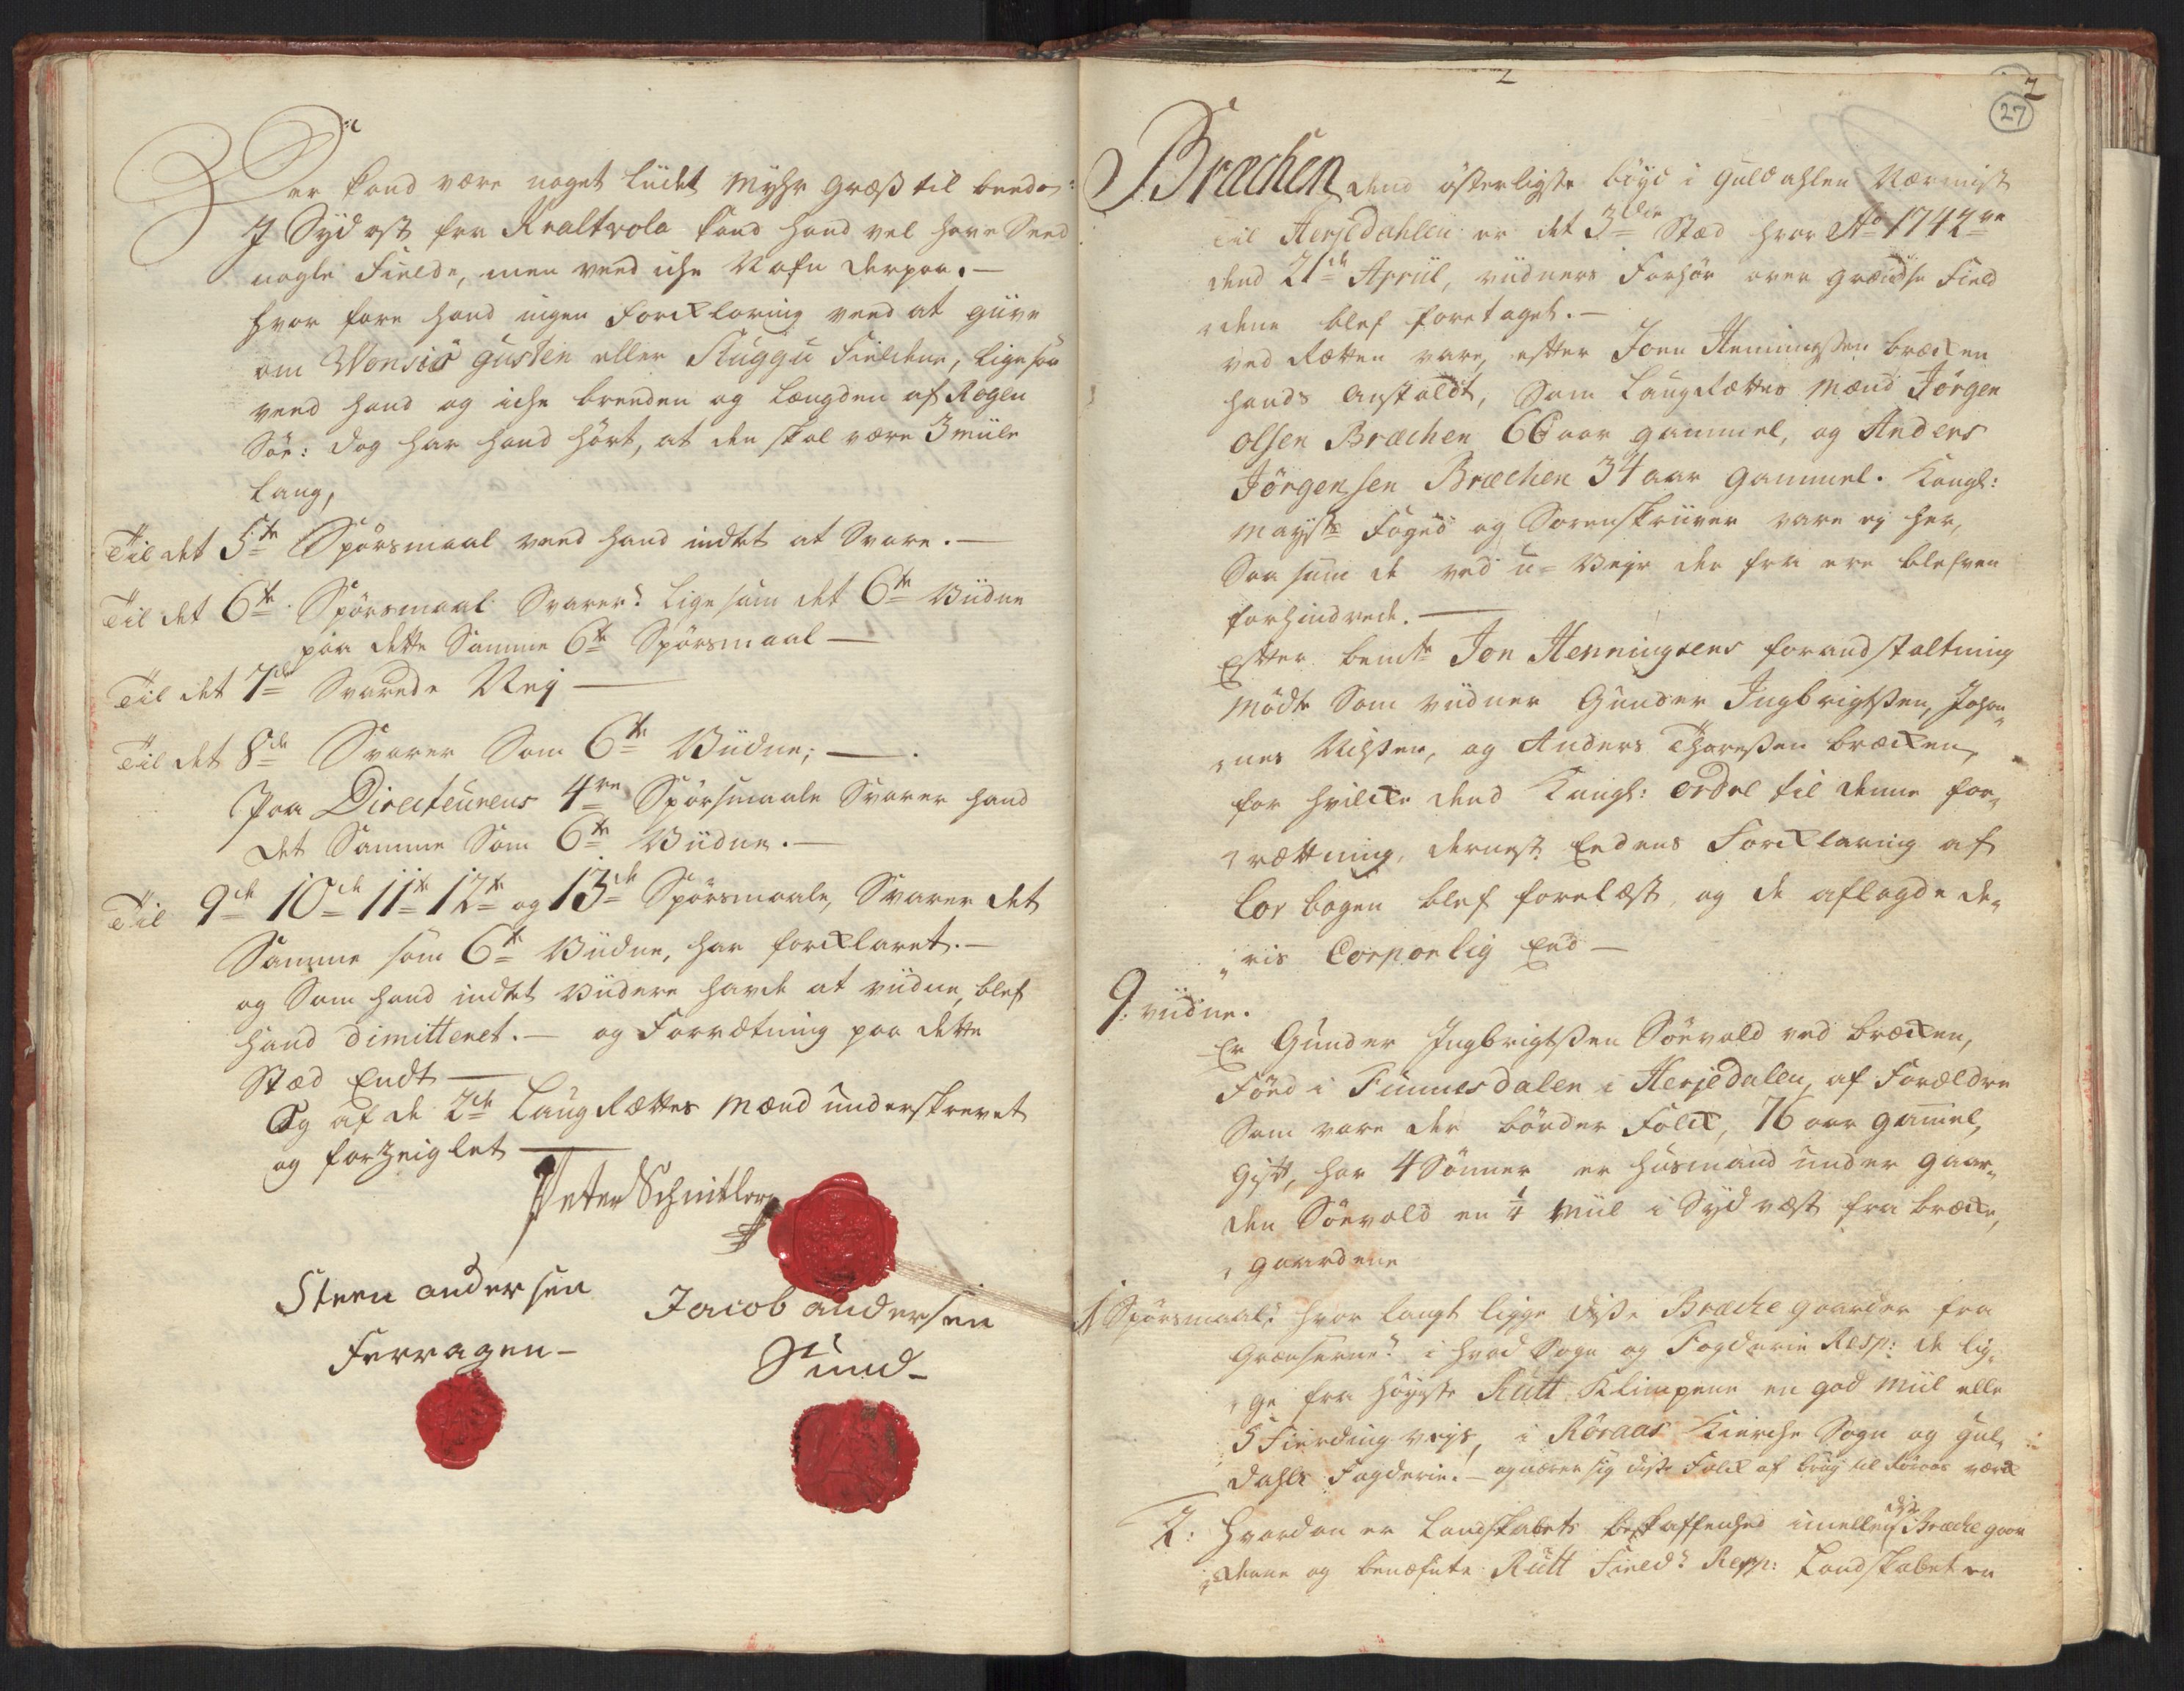 Der kand være noget lüdet Myhr Græs til beede:
I Syd ost fra Kraltvola kand hand vel have Seed
nogle Fielde, men veed iche Nafn derpaa. —
hvor fore hand ingen Forklaring veed at giive
om Wonsiö gusten eller Skuggu Fieldene, ligesaa
veed hand og iche breeden og Længden af Rogen
Söe: dog har hand hört, at den skal være 3 miile
Lang,
Til det 5te Spörsmaal veed hand indtet at Svare. —
Til det 6te Spörsmaal Svarer: Lige som det 6te Viidne
paa dette Samme 6te Spörsmaal —
Til det 7de Svarede Nej —
Til det 8de Svarer Som 6te Viidne; —
Paa Directeurens 4re Spörsmaale Svarer hand
det Samme Som 6te Viidne. —
Til 9de 10de 11te 12te og 13de Spörsmaale, Svarer det
Samme som 6te Viidne, har forklaret. —
og Som hand indtet Viidere havde at viidne, blef
hand dimitteret. — og Forrætning paa dette
Stæd Endt —
Og af de 2de Laugrættes Mænd underskrevet
og forzeiglet —
Peter Schnitler
Steen andersen
Jacob andersen
Ferragen —
Sund —
2
27
Bræchen dend österligste bÿgd i Guldahlen Nærmist
til Herjedahlen er det 3die Stæd hvor Ao 1742ve
dend 21de Apriil, viidners Forhör over Grændse Field
dene blef foretaget. —
ved Rætten vare, efter Joen Hemmingsen bræcken
hands anstaldt, Som Laugrættes Mænd Jörgen
Olsen Bræchen 66 aar gammel, og Anders
Jörgensen Bræchen 34 aar gammel. Kongl:
Mayts Foged og Sorenskriiver vare ej her,
Saa som de ved u-Vejr der fra ere blefven
forhindrede. —
Efter bemte Jon Henningsens forandstaltning
Mödte Som viidner Gunder Ingbrigtsen, Johan
nes Nilsen, og Anders Thoresen bræcken,
for hvilcke dend Kongl: ordre til denne for„
„rættning, dernæst Eedens Forklaring af
Lov bogen blef forelæst, og de aflagde de„
„ris Corporlig Eed —
9. viidne.
Er Gunder Ingbrigtsen Söevold ved bræcken,
Föed i Funnesdalen i Herjedalen, af Forældre
Som vare der bönder Folck, 76 aar gamel,
Gift, har 4 Sönner er huusmand under gaar„
den Söevold en 1/4 Miil i Syd væst fra bræcke,
„gaardene
1 Spörsmaal: hvor langt ligge disse Bræche gaarder fra
Grænserne? i hvad Sogn og Fogderie Resp: de lig„
„ge fra höyeste Rutt Klimpene en god Miil elle
5 Fierding vejs, i Röraas Kierche Sogn og Gul„
dahls Fogderie. — og nærer sig disse Folck af brug til Röraas værck
2: Hvordan er Landskabets beskaffenhed imellem disse Bræche gaar
„dene og benæfnte Rutt Field? Resp: Landskabet er